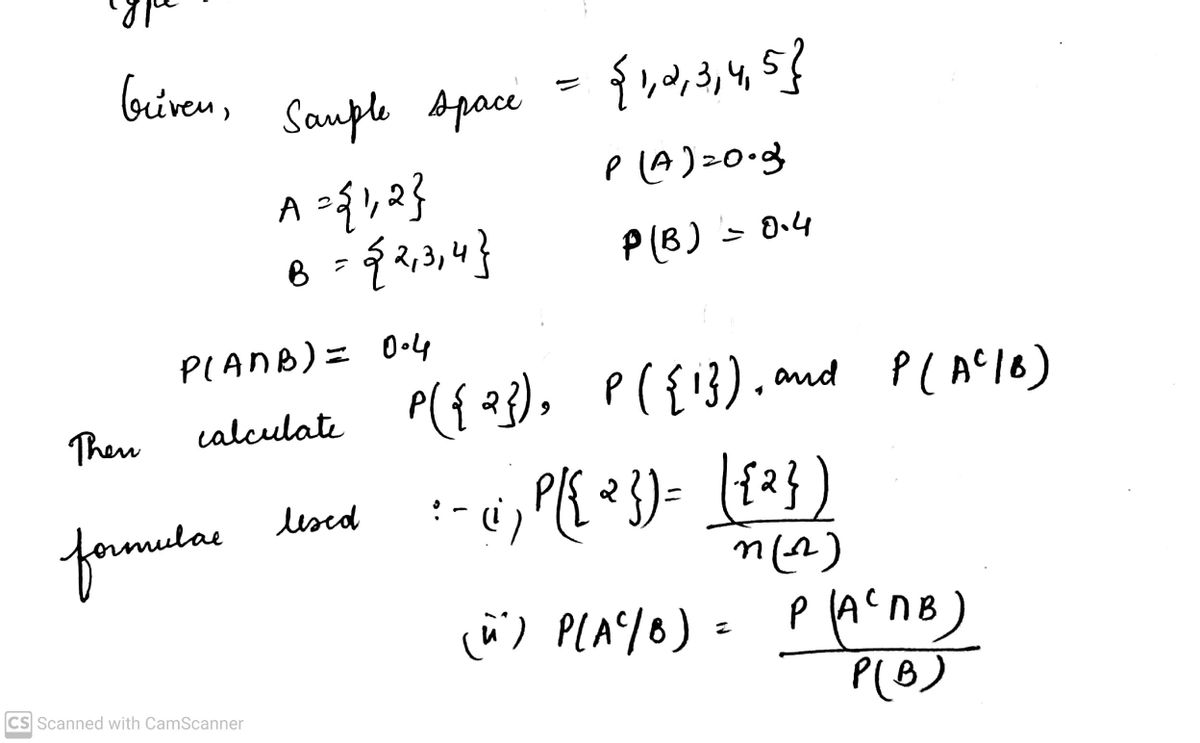 Given, Sample space = {1,2,3,4,5}
A = {1,2} P(A)=0.3
B = {2,3,4} P(B) = 0.4
P(A∩B) = 0.4
Then calculate P({2}), P({1}), and P(Aᶜ/B)
formulae used :- (i) P({2}) = ({2}) / n(Ω)
(ii) P(Aᶜ/B) = P(Aᶜ∩B) / P(B)
CS Scanned with CamScanner